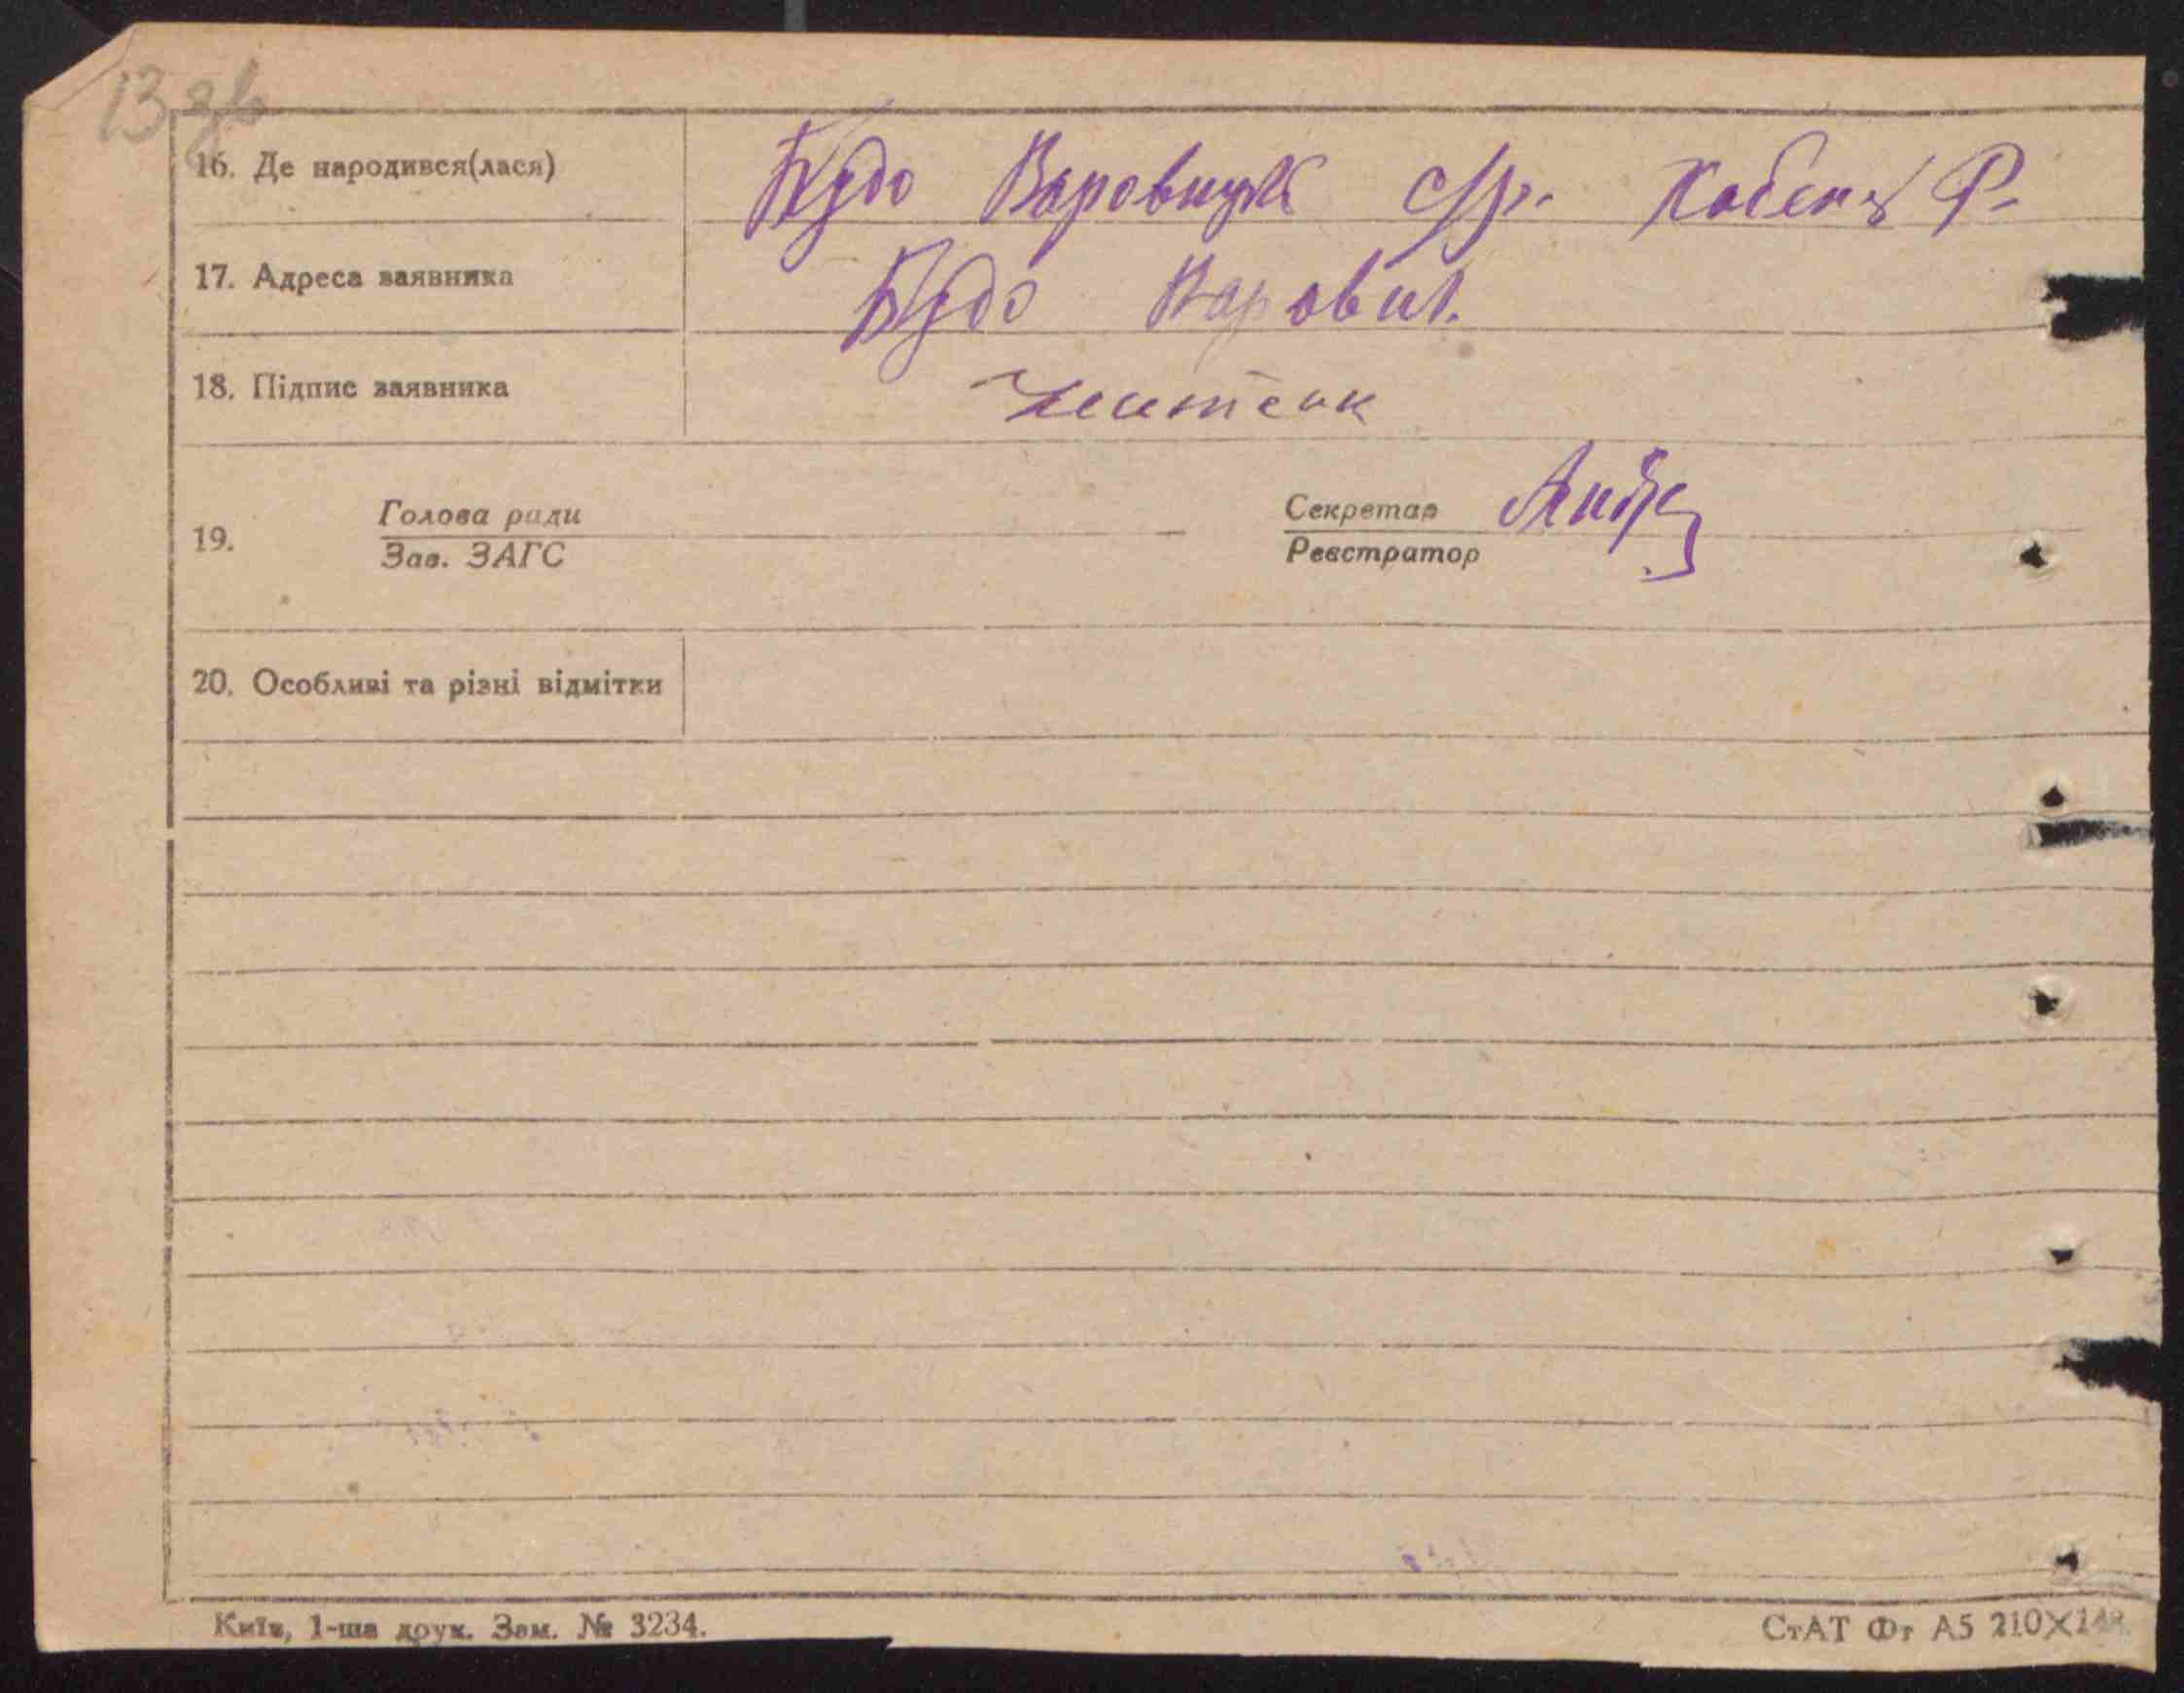 13 зв
16. Де народився(лася) Будо Варовицьк с/р. Кабенск Р-
17. Адреса заявника Будо Варович.
18. Підпис заявника
19. Голова ради Секретар
Зав. ЗАГС Реєстратор
20. Особливі та різні відмітки
Київ, 1-ша друк. Зам. № 3234. СтАТ Фт А5 210×148.